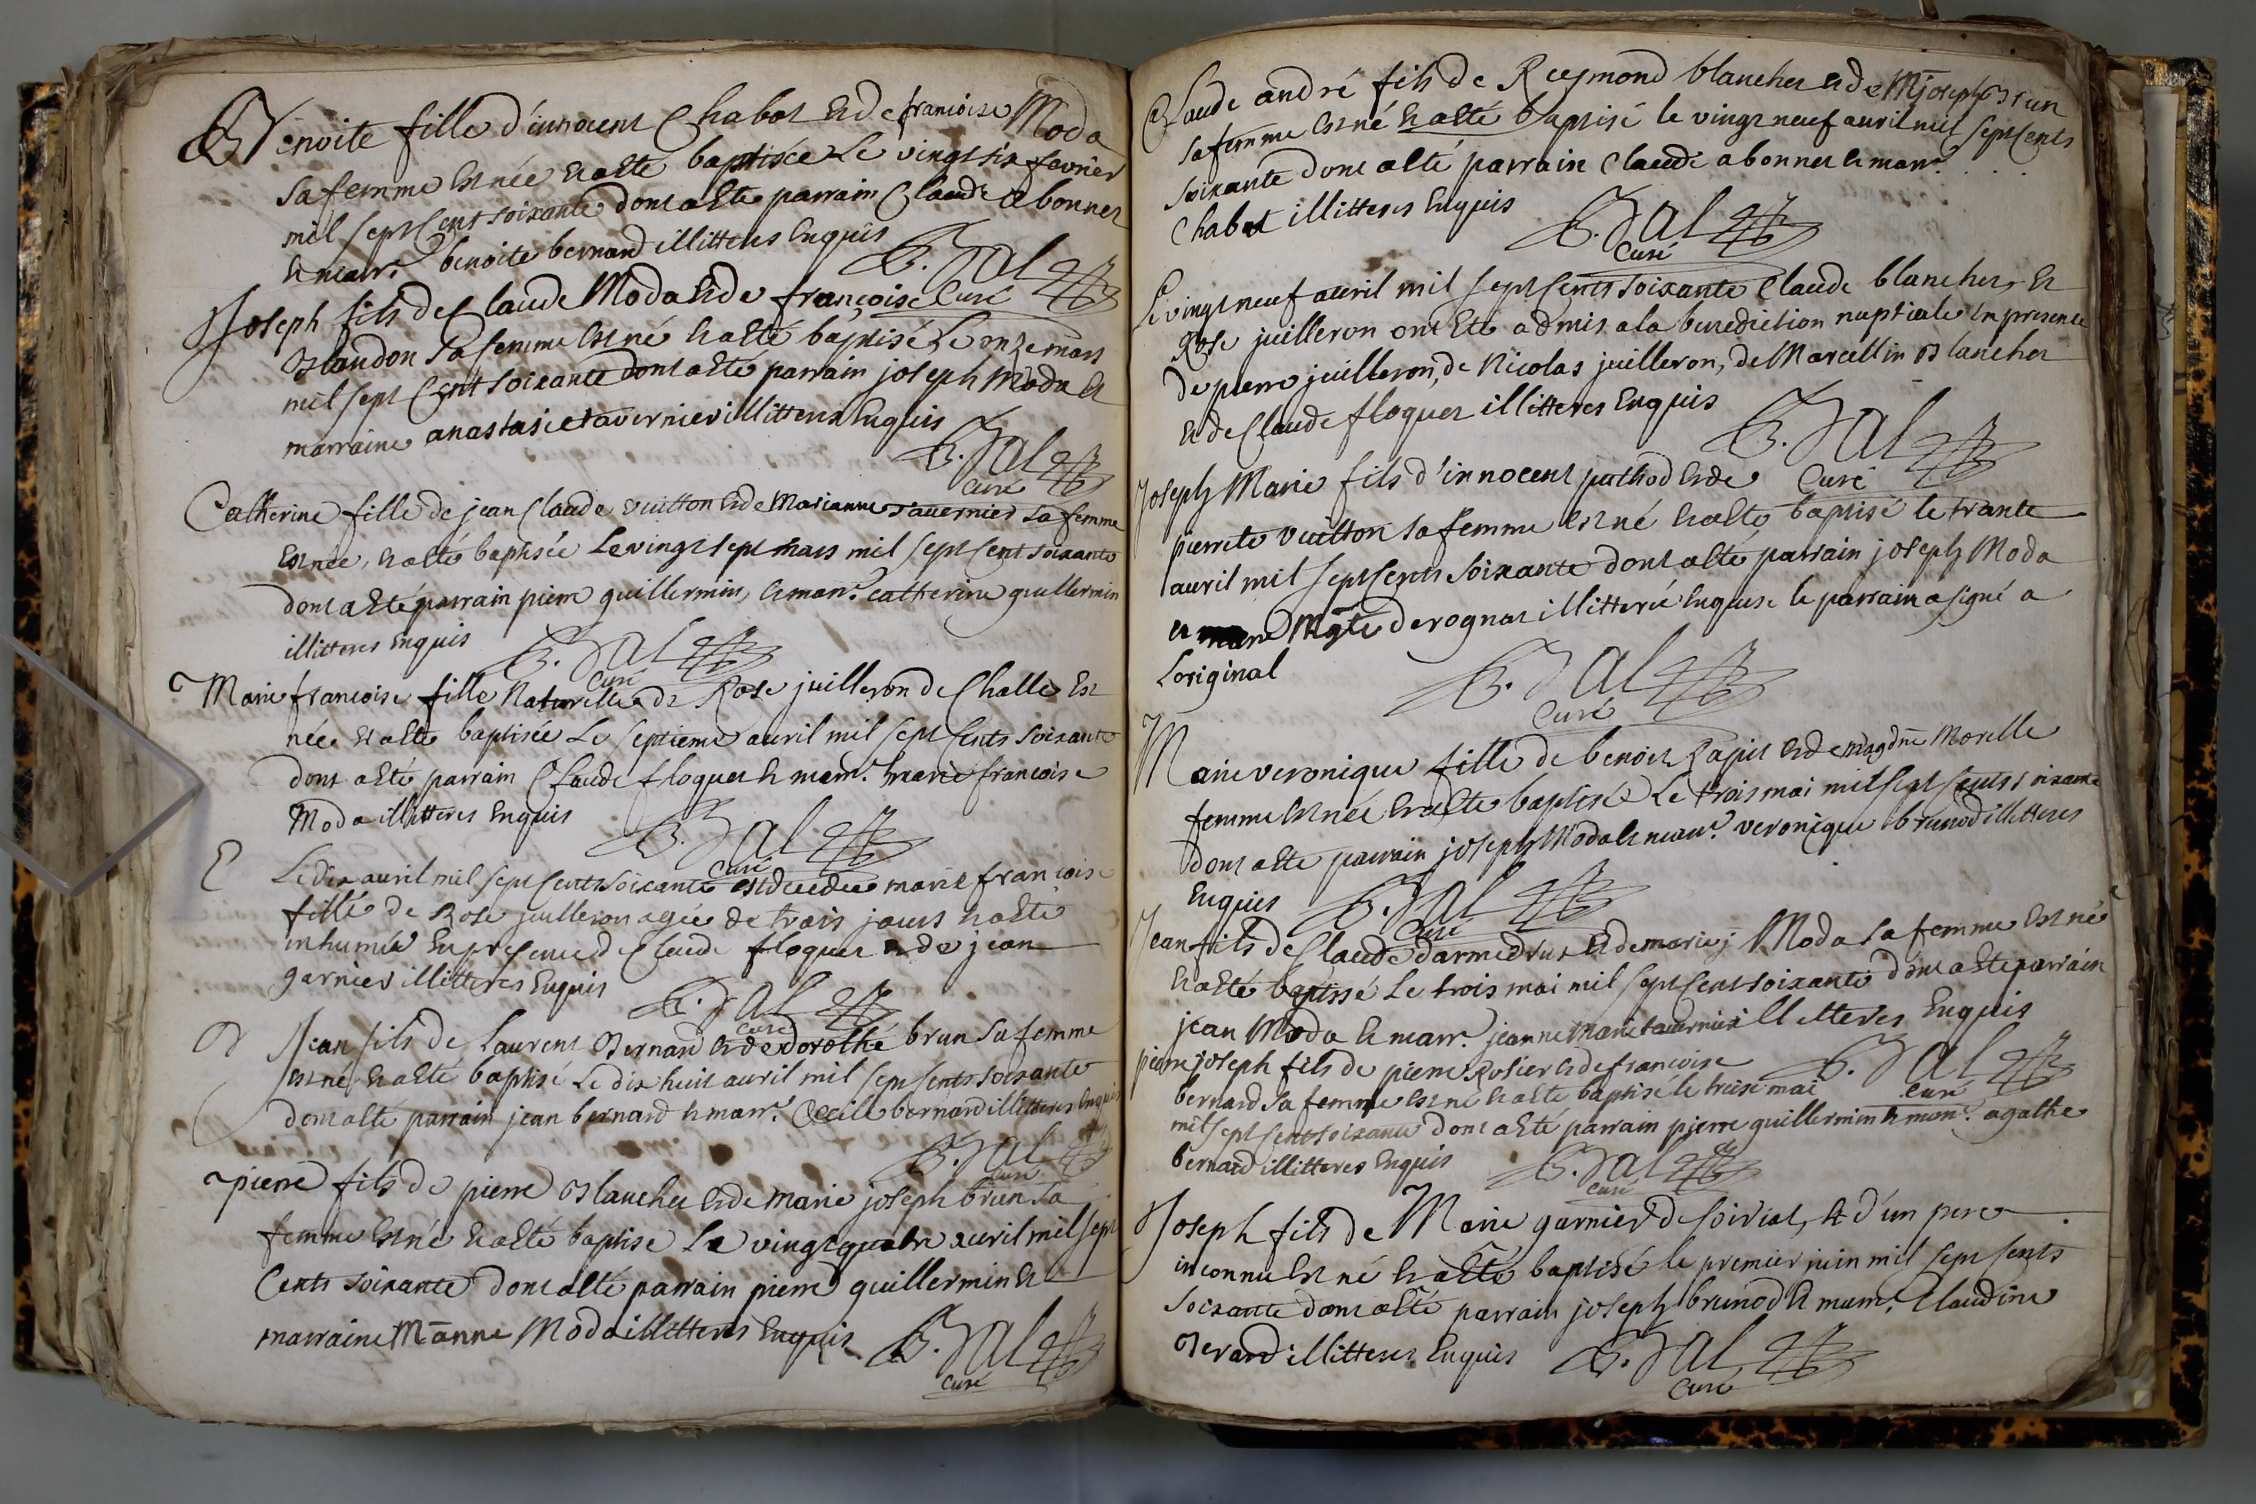 Benoite fille d'innocent Chabot et de francoise Moda
sa femme est née et a esté baptisée le vingt six fevrier
mil sept cent soixante dont a esté parrain Claude abonnet
et marr.e benoite bernard illitteres enquis
B. Jal
Curé
Joseph fils de Claude Moda et de françoise
blandon sa femme est né et a esté baptisé le onze mars
mil sept cent soixante dont a esté parrain joseph Moda et
marraine anastasie tavernier illitteres enquis
B. Jal
Curé
Catherine fille de jean Claude vuitton et de Marianne tavernier sa femme
est née, et a esté baptisée le vingt sept mars mil sept cent soixante
dont a esté parrain pierre guillermin, et marr.e catherine guillermin
illitteres enquis
B. Jal
Curé
Marie francoise fille Naturelle de Rose juilleron de Challes est
née et a esté baptisée le septieme avril mil sept cents soixante
dont a esté parrain Claude floquet et marr.e marie francoise
Moda illitteres enquis
B. Jal
Curé
Le dix avril mil sept cents soixante est decedee marie francoise
fille de Rose juilleron agée de trois jours et a esté
inhumée en presence de Claude floquet et de jean
garnier illitteres enquis
B. Jal
Curé
Jean fils de Laurent Bernard et de dorothé brun sa femme
est né et a esté baptisé le dix huit avril mil sept cents soixante
dont a esté parrain jean bernard et marr.e Cecile bernard illitteres enquis
B. Jal
Curé
pierre fils de pierre blanchet et de marie joseph brun sa
femme est né et a esté baptisé le vingt quatre avril mil sept
Cents soixante dont a esté parrain pierre guillermin et
marraine M anne Moda illitteres enquis
B. Jal
Curé
Claude andré fils de Reymond blanchet et de M joseph Brun
sa femme est né et a esté baptisé le vingt neuf avril mil sept Cents
soixante dont a esté parrain Claude abonnet et marr.e . . .
Chabot illitteres enquis
B. Jal
Curé
Le vingt neuf avril mil sept Cents soixante Claude blanchet, et
Rose juilleron ont esté admis a la benediction nuptiale en presence
de pierre juilleron, de Nicolas juilleron, de Marcellin Blanchet
et de Claude floquet illitteres enquis
B. Jal
Curé
Joseph Marie fils d'innocent pathod et de
pierrete vuitton sa femme est né et a esté baptisé le trante
avril mil sept Cents soixante dont a esté parrain joseph Moda
et marr.e Mgte derognat illitterée enquise le parrain a signé a
Loriginal
B. Jal
Curé
Marie veronique fille de benoit Rapit et de magdne Morelle
femme est née et a esté baptisée le trois mai mil sept cents soixante
dont a esté parrain joseph Moda et marr.e veronique brunod illitteres
enquis
B. Jal
Curé
Jean fils de Claude d'armedrut et de marie j Moda sa femme est né
et a esté baptisé le trois mai mil sept cent soixante dont a esté parrain
jean Moda et marr.e jeanne Marie tavernier illitteres enquis
B. Jal
Curé
pierre joseph fils de pierre Rosier et de francoise
bernard sa femme est né et a esté baptisé le treise mai
mil sept cent soixante dont a esté parrain pierre guillermin et marr.e agathe
bernard illitteres enquis
B. Jal
Curé
Joseph fils de Marie garnier de soiriat, et d'un pere
inconnu est né et a esté baptisé le premier juin mil sept cents
soixante dont a esté parrain joseph brunod et marr.e Claudine
Berard illitteres enquis
B. Jal
Curé